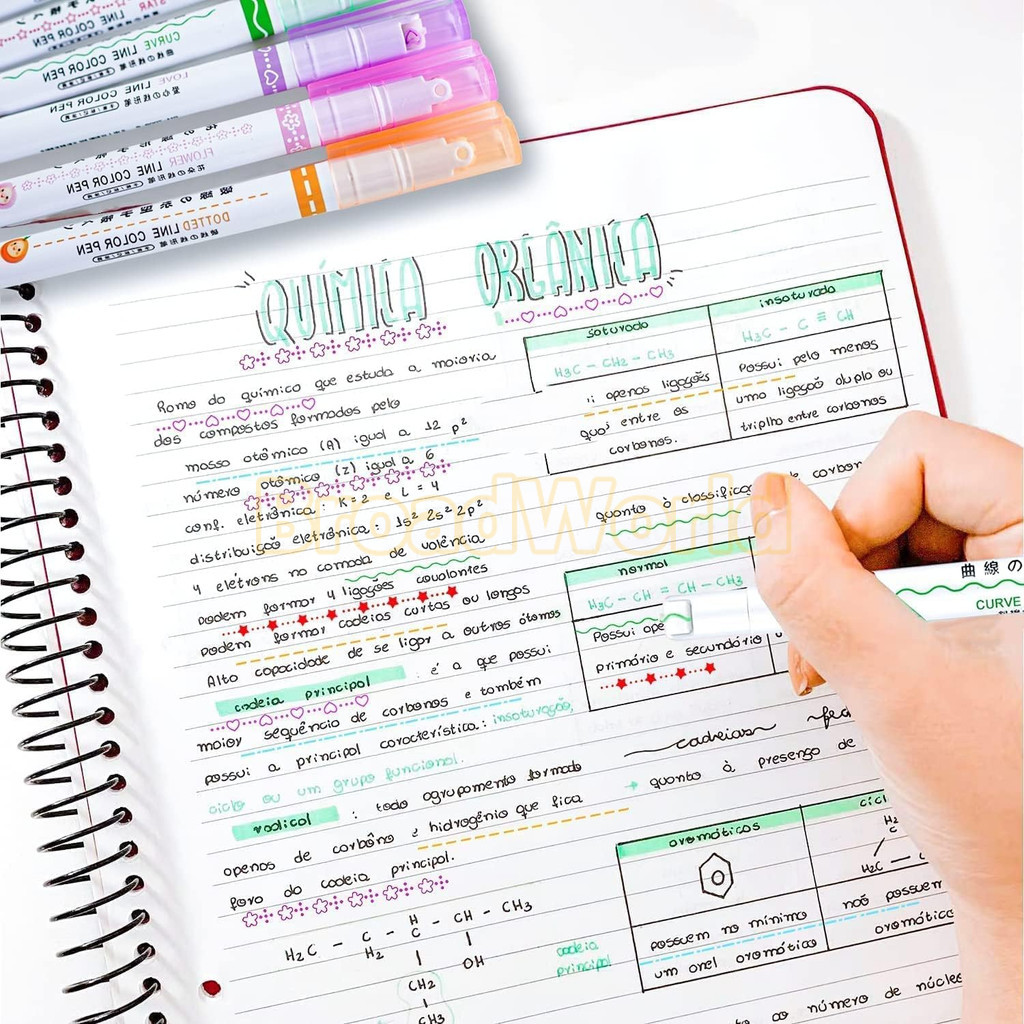 STAR
LINE COLOR PEN
CURVE
LINE COLOR PEN
LOVE
LINE COLOR PEN
FLOWER
LINE COLOR PEN
DOTTED
LINE COLOR PEN
QUÍMICA ORGÂNICA
Ramo da química que estuda a maioria
dos compostos formados pelo
massa atômica (A) igual a 12 p²
número atômico (z) igual a 6
conf. eletrônica: K=2 e L=4
distribuição eletrônica: 1s² 2s² 2p²
4 elétrons na camada de valência
podem formar 4 ligações covalentes
podem formar cadeias curtas ou longas
Alta capacidade de se ligar a outros átomos
cadeia principal : é a que possui
maior sequência de carbonos e também
possui a principal característica: insaturação,
ciclo ou um grupo funcional.
radical : todo agrupamento formado
apenas de carbono e hidrogênio que fica
fora da cadeia principal.
H
H₂C - C - C - CH - CH₃
H₂
OH
CH₂
CH₃
cadeia
principal
saturada
H₃C - CH₂ - CH₃
apenas ligações
entre os
carbonos.
insaturada
H₃C - C ≡ CH
Possui pelo menos
uma ligação dupla ou
triplha entre carbonos
quanto à
normal
H₃C - CH = CH - CH₃
Possui
primário e secundário
cadeias
→ quanto à presença de
aromáticas
possuem no mínimo
um anel aromático
H₂
C
H₂C
naõ possuem
aromático
ao número de
BroadWorld
曲線の
CURVE